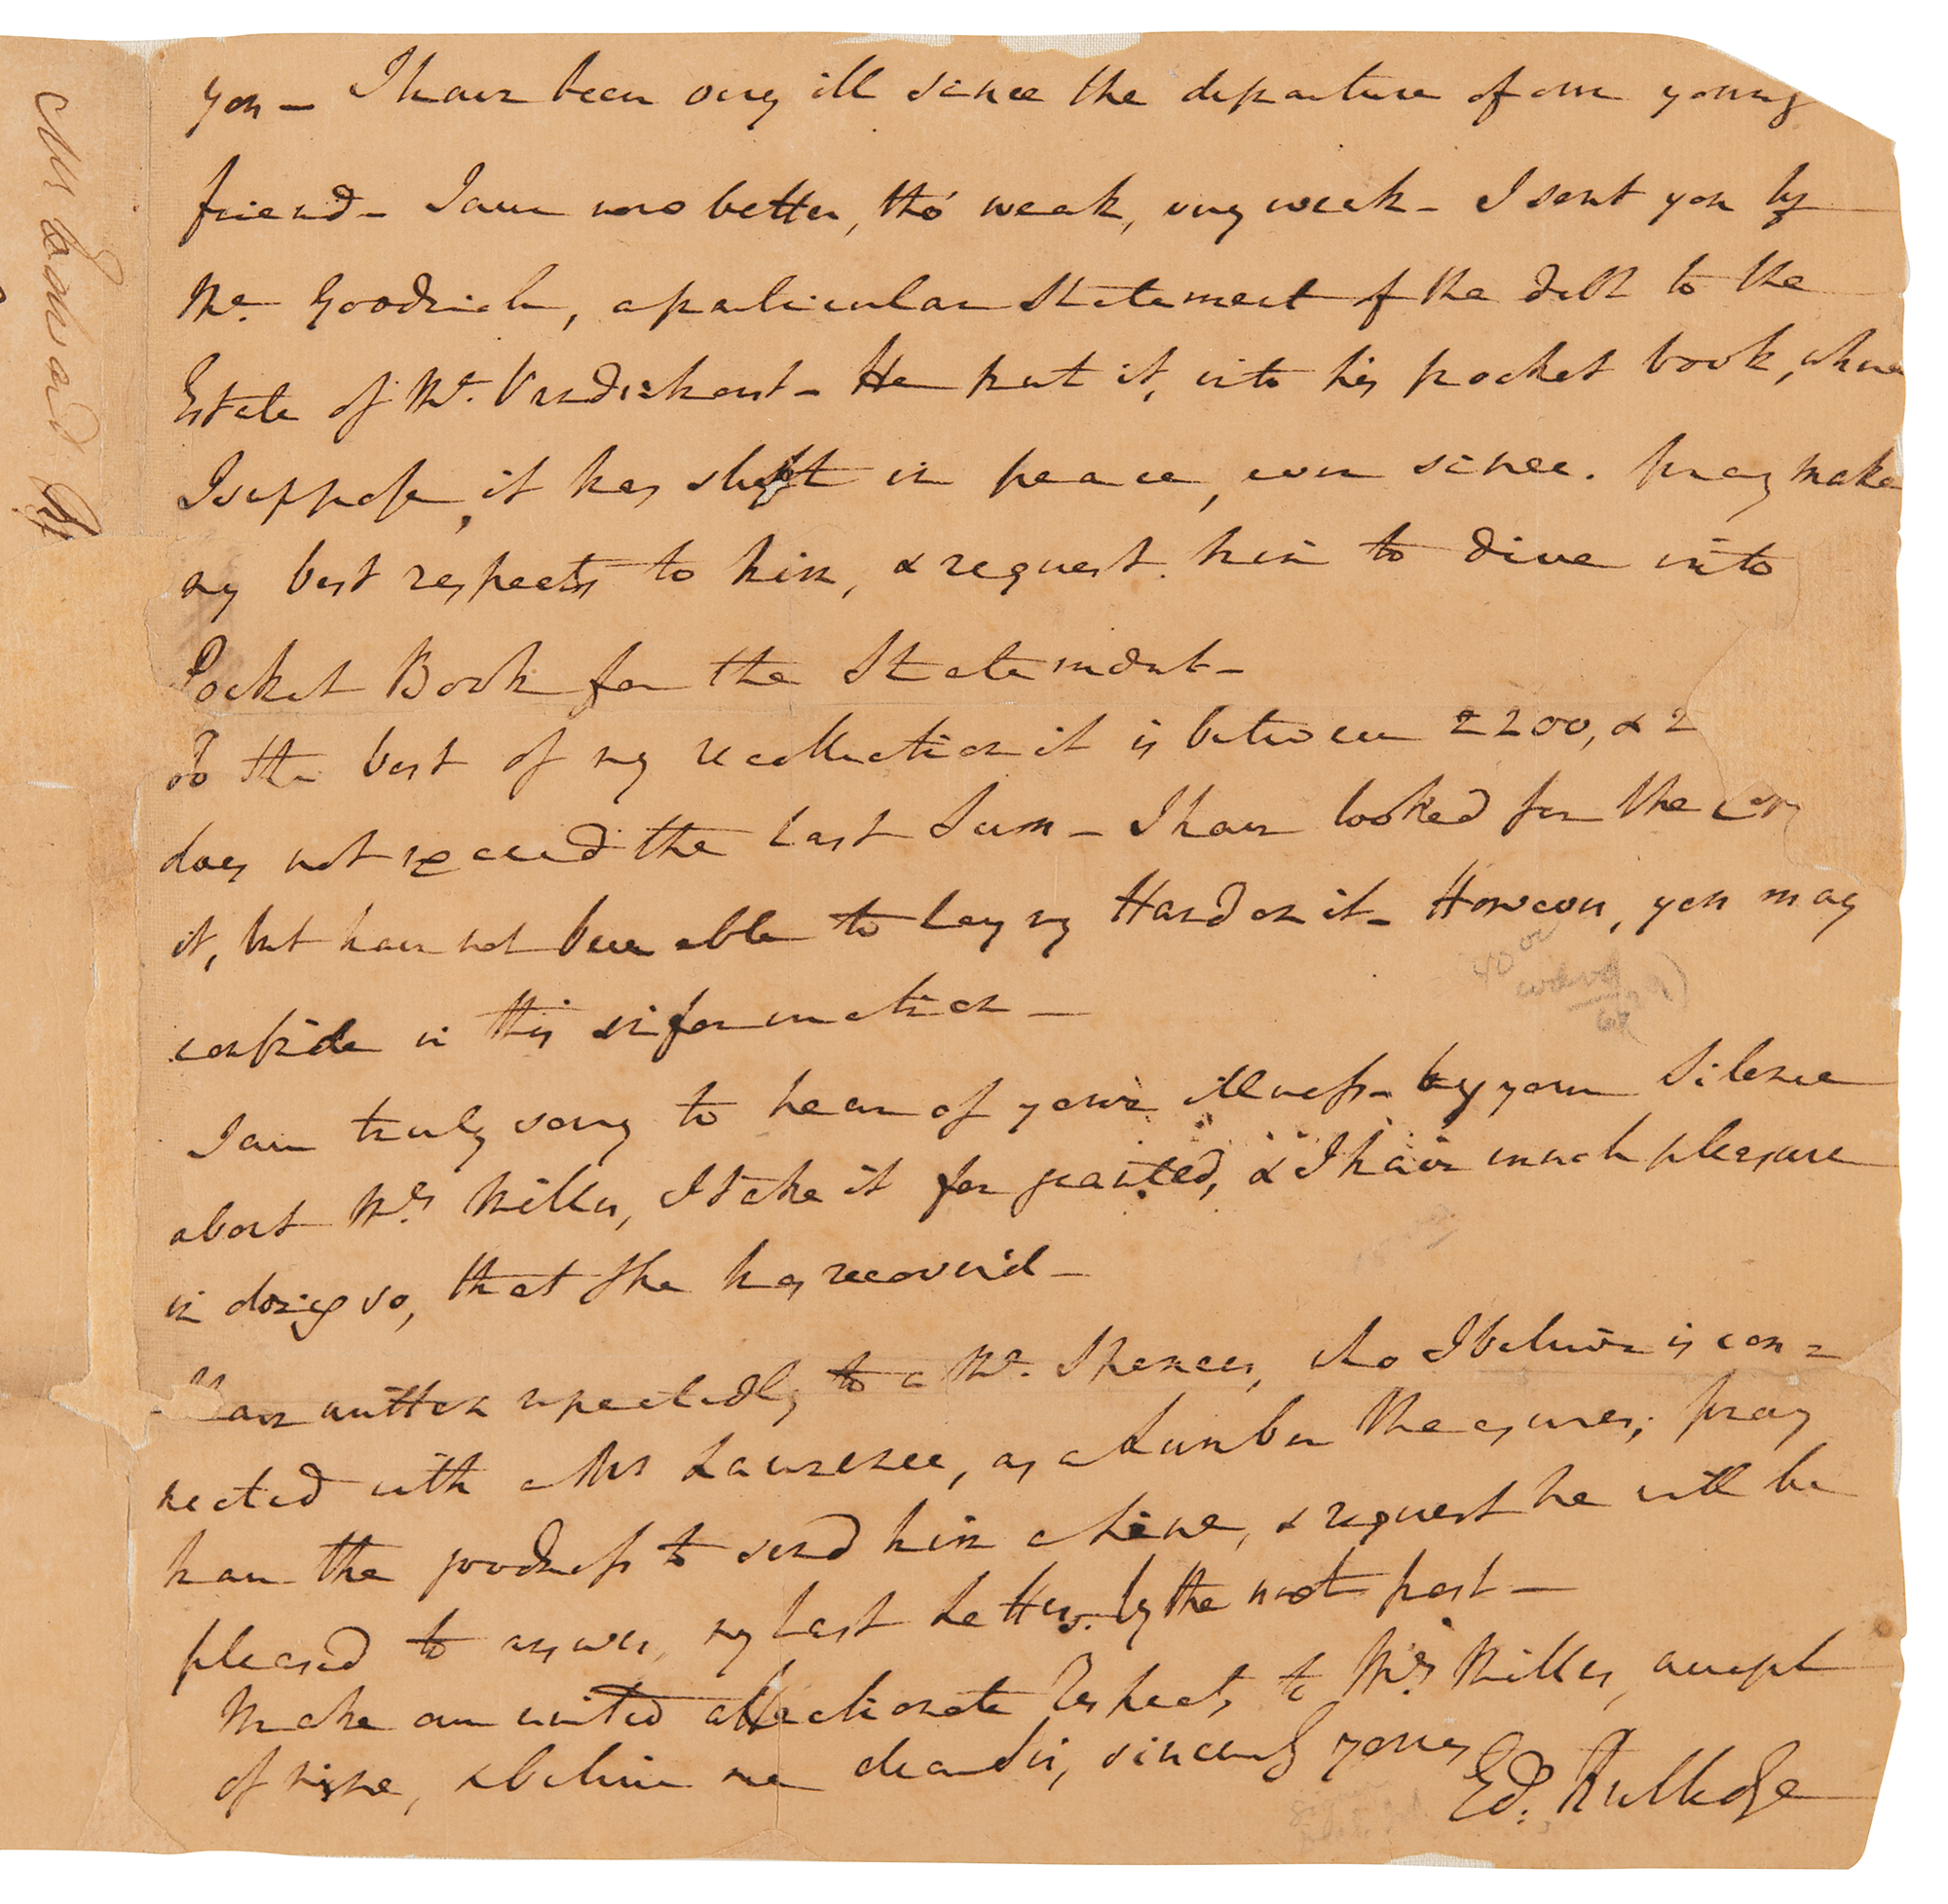 you – I have been very ill since the departure of our young
friend – I am now better, tho' weak, very weak – I sent you by
Mr. Goodrich, a particular Statement of the debt to the
Estate of Mr. – He put it, into his pocket book, where
I suppose, it has slept in peace, ever since. pray make
my best respects to him, & request him to dive into
Pocket Book for the Statement –
To the best of my recollection it is between 2200, & 2
does not exceed the last Sum – I have looked for the
it, but have not been able to lay my Hand on it – However, you may
confide in this information –
I am truly sorry to hear of your illness – by your Silence
about Mrs Miller, I take it for granted, & I have much pleasure
in doing so, that She has recover'd –
have written repeatedly to a Mr. Spencer, who I believe is con=
nected with Mr Lawrence, as a Lumber Measurer; pray
have the goodness to send him a Line, & request he will be
pleased to answer, my last Letters. by the next post –
Make our united affectionate Respects to Mrs Miller, accept
of mine, & believe me dear Sir, sincerely yours
Ed. Rutledge